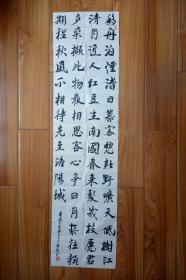 移舟泊煙渚日暮客愁新野曠天低樹江
清月近人紅豆生南國春来發幾枝願君
多采擷此物最相思客心爭日月来往預
期程秋風不相待先至洛陽城